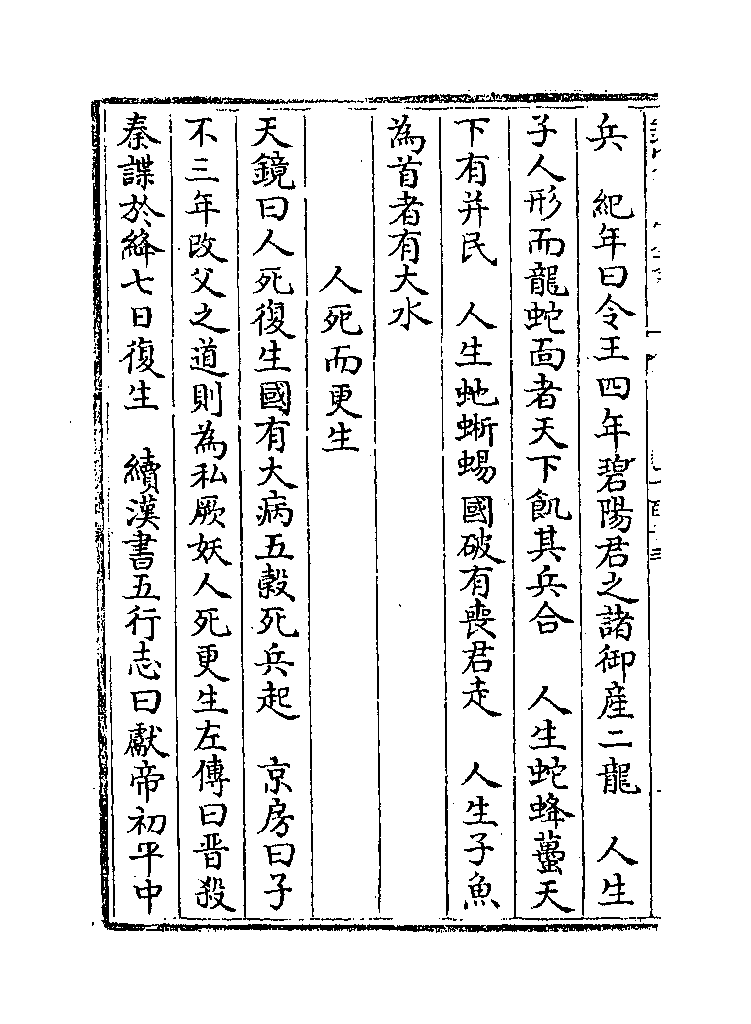 兵　紀年曰令王四年碧陽君之諸御産二龍　人生
子人形而龍蛇面者天下飢其兵合　人生蛇蜂蠆天
下有並民　人生虵蜥蜴國破有喪君走　人生子魚
為首者有大水
人死而更生
天鏡曰人死復生國有大病五穀死兵起　京房曰子
不三年改父之道則為私厥妖人死更生左傳曰晋殺
秦諜於絳七日復生　續漢書五行志曰獻帝初平中